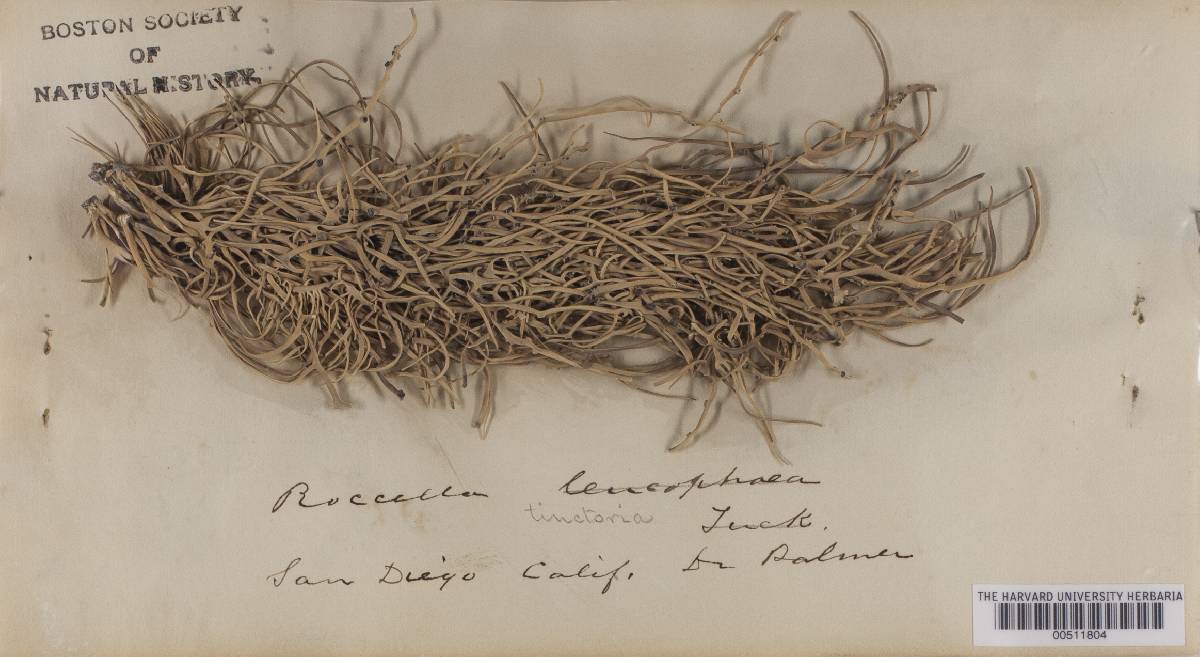 BOSTON SOCIETY
OF
NATURAL HISTORY.
Roccella leucophaea
tinctoria Tuck.
San Diego Calif. Dr Palmer
THE HARVARD UNIVERSITY HERBARIA
00511804